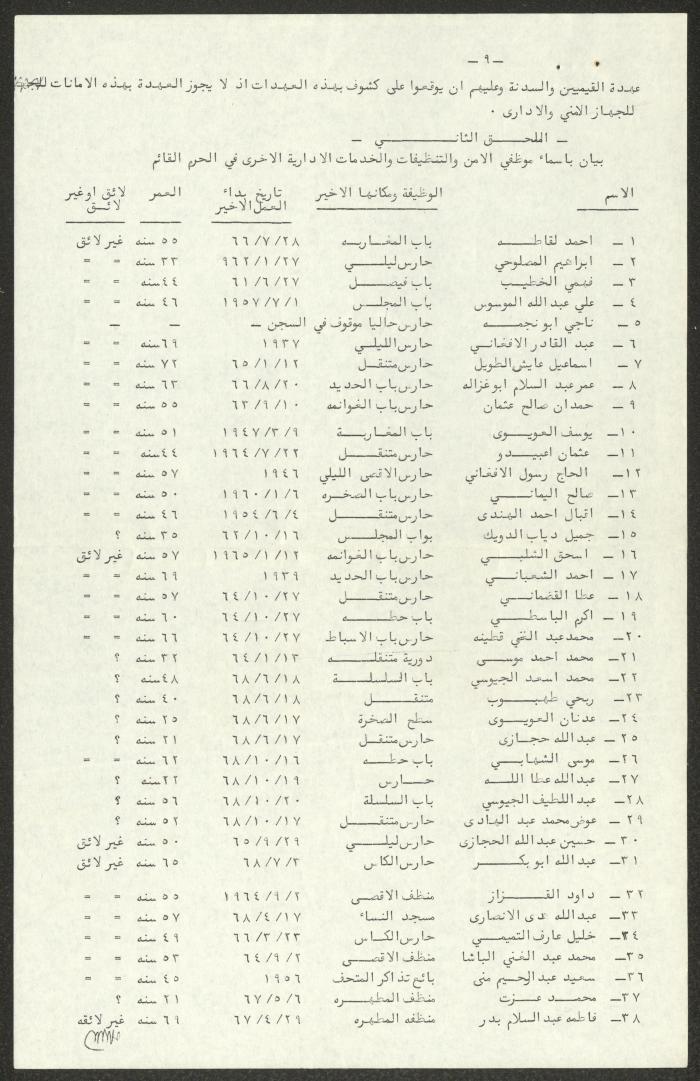 — ٩ —
عهدة القيمين والسدنة وعليهم ان يوقعوا على كشوف بهذه العهدات اذ لا يجوز العهدة بهذه الامانات
للجهاز الامني والادارى ٠
— الملحق الثاني —
بيان باسماء موظفي الامن والتنظيفات والخدمات الادارية الاخرى في الحرم القائم
الاسم الوظيفة ومكانها الاخير تاريخ بداء العمل الاخير العمر لائق اوغير لائق
١ — احمد لقاطه باب المغاربه ٦٦/٧/٢٨ ٥٥ سنه غير لائق
٢ — ابراهيم المصلوحي حارس ليلي ٩٦٢/١/٢٧ ٣٣ سنه = =
٣ — فهمي الخطيب باب فيصل ٦١/٦/٢٧ ٤٤ سنه = =
٤ — علي عبد الله الموسوس باب المجلس ١٩٥٧/٧/١ ٤٦ سنه = =
٥ — ناجي ابو نجمه حارس حاليا موقوف في السجن — — —
٦ — عبد القادر الافغاني حارس الليلي ١٩٣٧ ٦٩ سنه = =
٧ — اسماعيل عايش الطويل حارس متنقل ٦٥/١/١٢ ٧٢ سنه = =
٨ — عمر عبد السلام ابو غزاله حارس باب الحديد ٦٦/٨/٢٠ ٦٣ سنه = =
٩ — حمدان صالح عثمان حارس باب الغوانمه ٦٣/٩/١٠ ٥٥ سنه = =
١٠— يوسف العويوى باب المغاربة ١٩٤٧/٣/٩ ٥١ سنه = =
١١— عثمان اعبيدو حارس متنقل ١٩٦٤/٧/٢٢ ٤٤ سنه = =
١٢— الحاج رسول الافغاني حارس الاقصى الليلي ١٩٤٦ ٥٧ سنه = =
١٣— صالح اليماني حارس باب الصخره ١٩٦٠/١/٦ ٥٠ سنه = =
١٤— اقبال احمد الهندى حارس متنقل ١٩٥٤/٦/٤ ٤٦ سنه = =
١٥— جميل دياب الدويك بواب المجلس ٦٢/١٠/١٦ ٣٥ سنه ؟
١٦ — اسحق الشلبي حارس باب الغوانمه ١٩٦٥/١/١٢ ٥٧ سنه غير لائق
١٧ — احمد الشعباني حارس باب الحديد ١٩٣٩ ٦٩ سنه = =
١٨ — عطا القضماني حارس متنقل ٦٤/١٠/٢٧ ٥٧ سنه = =
١٩ — اكرم الباسطي باب حطه ٦٤/١٠/٢٧ ٦٠ سنه = =
٢٠— محمد عبد الغني قطينه حارس باب الاسباط ٦٤/١٠/٢٧ ٦٦ سنه = =
٢١— محمد احمد موسى دورية متنقله ٦٤/١/١٣ ٣٢ سنه ؟
٢٢— محمد اسعد الجيوسي باب السلسلة ٦٨/٦/١٨ ٤٨ سنه ؟
٢٣— ربحي طهبوب متنقل ٦٨/٦/١٨ ٤٠ سنه ؟
٢٤— عدنان العويوى سطح الصخرة ٦٨/٦/١٧ ٢٥ سنه ؟
٢٥ — عبدالله حجازى حارس متنقل ٦٨/٦/١٧ ٢١ سنه ؟
٢٦— موسى الشهابي باب حطه ٦٨/١٠/١٦ ٦٢ سنه = =
٢٧— عبدالله عطا الله حارس ٦٨/١٠/١٩ ٢٢ سنه ؟
٢٨— عبد اللطيف الجيوسي باب السلسلة ٦٨/١٠/٢٠ ٥٦ سنه ؟
٢٩ — عوض محمد عبد الهادى حارس متنقل ٦٨/١٠/١٧ ٥٢ سنه ؟
٣٠ — حسين عبدالله الحجازى حارس ليلي ٦٥/٩/٢٩ ٥٠ سنه غير لائق
٣١— عبدالله ابو بكر حارس الكاس ٦٨/٧/٣ ٦٥ سنه غير لائق
٣٢ — داود القزاز منظف الاقصى ١٩٦٤/٩/٢ ٥٥ سنه = =
٣٣— عبدالله ندى الانصارى مسجد النساء ٦٨/٤/١٧ ٥٧ سنه = =
٣٤— خليل عارف التميمي حارس الكاس ٦٦/٣/٢٣ ٤٩ سنه = =
٣٥— محمد عبد الغني الباشا منظف الاقصى ٦٤/٩/٢ ٥٣ سنه = =
٣٦— سعيد عبد الرحيم منى بائع تذاكر المتحف ١٩٥٦ ٤٥ سنه = =
٣٧— محمد عزت منظف المطهره ٦٧/٥/٦ ٢١ سنه ؟
٣٨— فاطمه عبد السلام بدر منظفه المطهره ٦٧/٤/٢٩ ٦٩ سنه غير لائقه